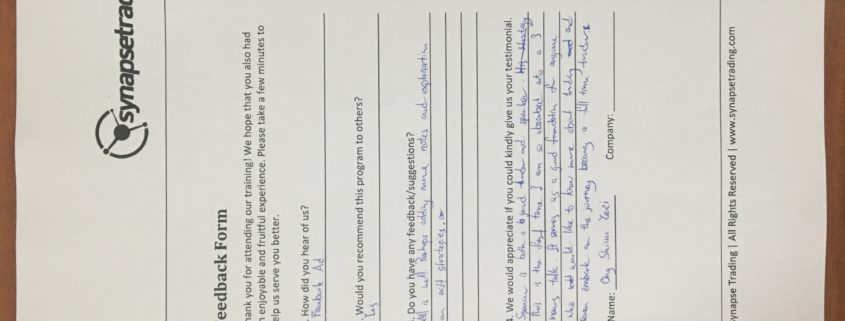 synapsetrad
eedback Form
hank you for attending our training! We hope that you also had
n enjoyable and fruitful experience. Please take a few minutes to
elp us serve you better.
. How did you hear of us?
Facebook Ad
. Would you recommend this program to others?
Yes
. Do you have any feedback/suggestions?
All is well. Perhaps adding more notes and explanation
on exit strategies.
4. We would appreciate if you could kindly give us your testimonal.
Spencer is both a good trader and speaker.
This is the first time I am so absorbed into a 3
hours talk. It serves as a good foundation for anyone
who would like to know more about trading and
even embark on the journey being a full time trader.
Name: Ong Company:
ynapse Trading | All Rights Reserved | www.synapsetrading.com